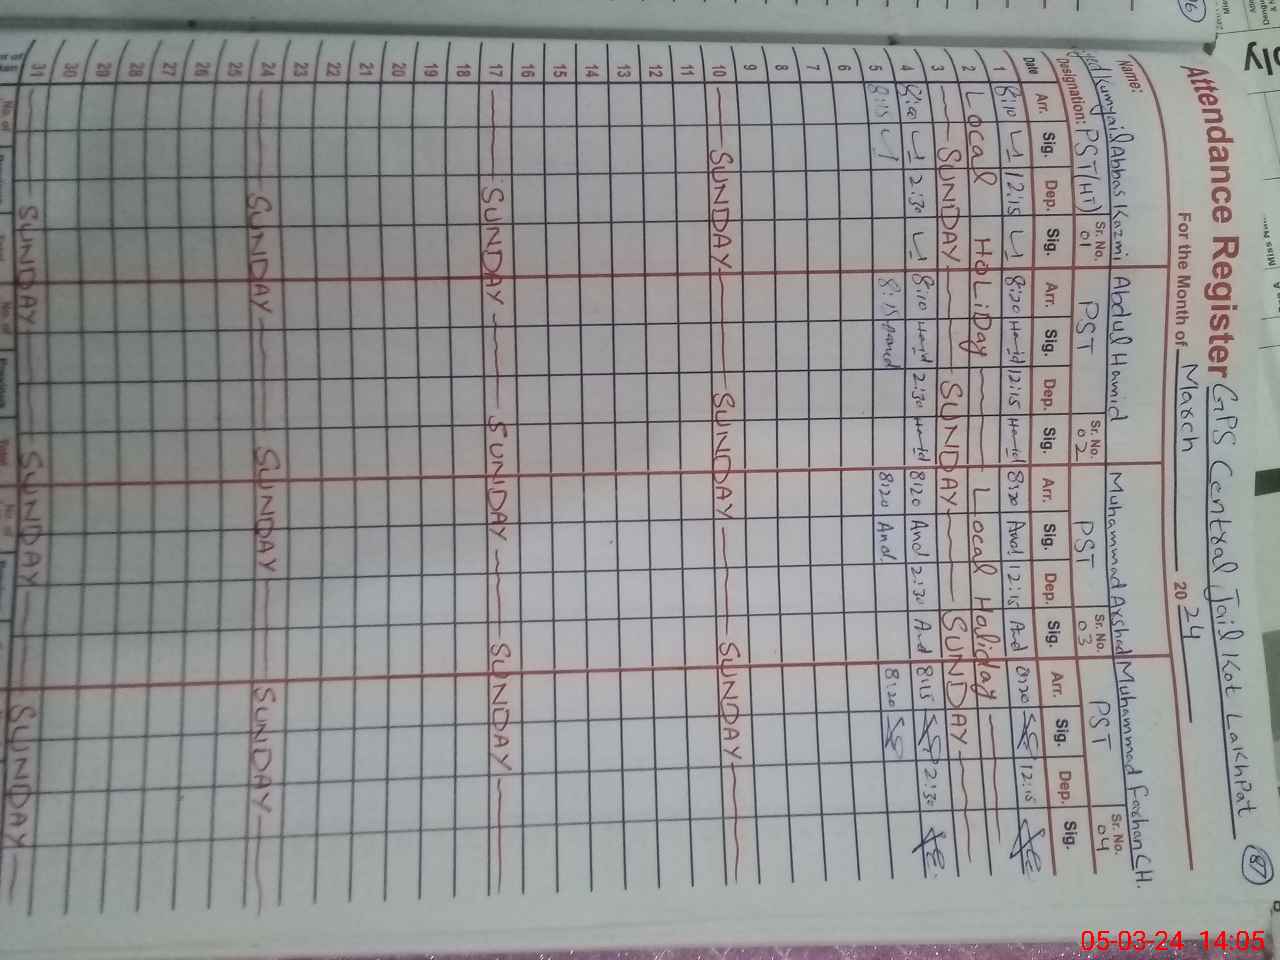 Attendance Register GPS Central Jail Kot Lakhpat
87
For the Month of March 2024
Name: Kumyail Abbas Kazmi Abdul Hamid Muhammad Arshad Muhammad Farhan CH.
Designation: PST(HT) Sr. No. 01 PST Sr. No. 02 PST Sr. No. 03 PST Sr. No. 04
Date Arr. Sig. Dep. Sig. Arr. Sig. Dep. Sig. Arr. Sig. Dep. Sig. Arr. Sig. Dep. Sig.
1 8:10 12:15 8:20 Hamid 12:15 Hamid 8:20 12:15 8:20 12:15
2 Local HoLiDay Local Haliday
3 SUNDAY SUNDAY SUNDAY
4 8:00 2:30 8:10 Hamid 2:30 Hamid 8:20 2:30 8:15 2:30
5 8:15 8:15 Hamid 8:20 8:20
6
7
8
9
10 SUNDAY SUNDAY SUNDAY
11
12
13
14
15
16
17 SUNDAY SUNDAY SUNDAY
18
19
20
21
22
23
24 SUNDAY SUNDAY SUNDAY
25
26
27
28
29
30
31 SUNDAY SUNDAY SUNDAY
No. of Total No. of Previous Total No. of
05-03-24 14:05